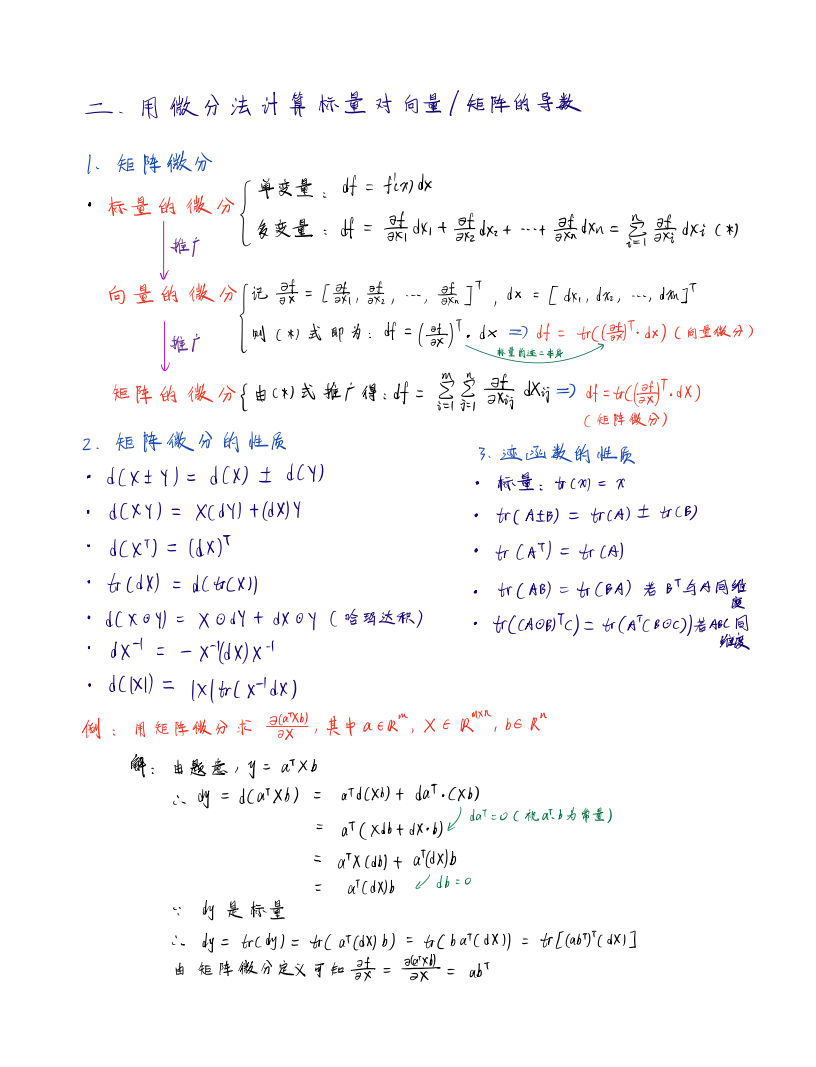 二. 用微分法计算标量对向量/矩阵的导数
1. 矩阵微分
· 标量的微分 { 单变量: df = f'(x)dx
多变量: df = ∂f/∂x₁ dx₁ + ∂f/∂x₂ dx₂ + ⋯ + ∂f/∂xₙ dxₙ = Σᵢ₌₁ⁿ ∂f/∂xᵢ dxᵢ (*)
推广
向量的微分 { 记 ∂f/∂x = [∂f/∂x₁, ∂f/∂x₂, ⋯, ∂f/∂xₙ]ᵀ, dx = [dx₁, dx₂, ⋯, dxₙ]ᵀ
则(*)式即为: df = (∂f/∂x)ᵀ · dx ⇒ df = tr((∂f/∂x)ᵀ · dx) (向量微分)
标量的迹=本身
推广
矩阵的微分 { 由(*)式推广得: df = Σᵢ₌₁ᵐ Σⱼ₌₁ⁿ ∂f/∂Xᵢⱼ dXᵢⱼ ⇒ df = tr((∂f/∂X)ᵀ · dX)
(矩阵微分)
2. 矩阵微分的性质
· d(X±Y) = d(X) ± d(Y)
· d(XY) = X(dY) + (dX)Y
· d(Xᵀ) = (dX)ᵀ
· tr(dX) = d(tr(X))
· d(X⊙Y) = X⊙dY + dX⊙Y (哈玛达积)
· dX⁻¹ = -X⁻¹(dX)X⁻¹
· d(|X|) = |X|tr(X⁻¹dX)
3. 迹函数的性质
· 标量: tr(x) = x
· tr(A±B) = tr(A) ± tr(B)
· tr(Aᵀ) = tr(A)
· tr(AB) = tr(BA) 若Bᵀ与A同维
度
· tr((A⊙B)ᵀC) = tr(Aᵀ(B⊙C)) 若ABC同
维度
例: 用矩阵微分求 ∂(aᵀXb)/∂X, 其中 a∈Rᵐ, X∈Rᵐˣⁿ, b∈Rⁿ
解: 由题意, y = aᵀXb
∴ dy = d(aᵀXb) = aᵀd(Xb) + daᵀ·(Xb)
= aᵀ(Xdb + dX·b) daᵀ=0 (视a、b为常量)
= aᵀX(db) + aᵀ(dX)b
= aᵀ(dX)b db=0
∵ dy是标量
∴ dy = tr(dy) = tr(aᵀ(dX)b) = tr(baᵀ(dX)) = tr[(abᵀ)ᵀ(dX)]
由矩阵微分定义可知 ∂f/∂X = ∂(aᵀXb)/∂X = abᵀ